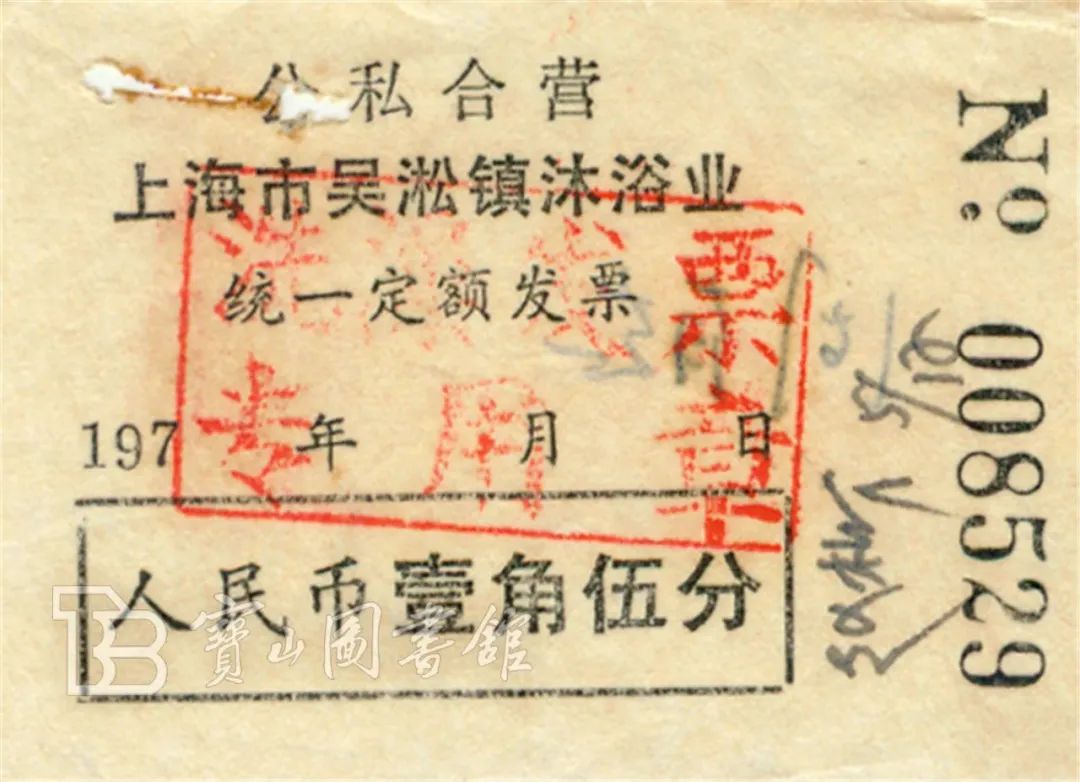 公私合营
上海市吴淞镇沐浴业
统一定额发票
197 年 月 日
人民币壹角伍分
No. 008529
票
专用章
5/10
寶山圖書館